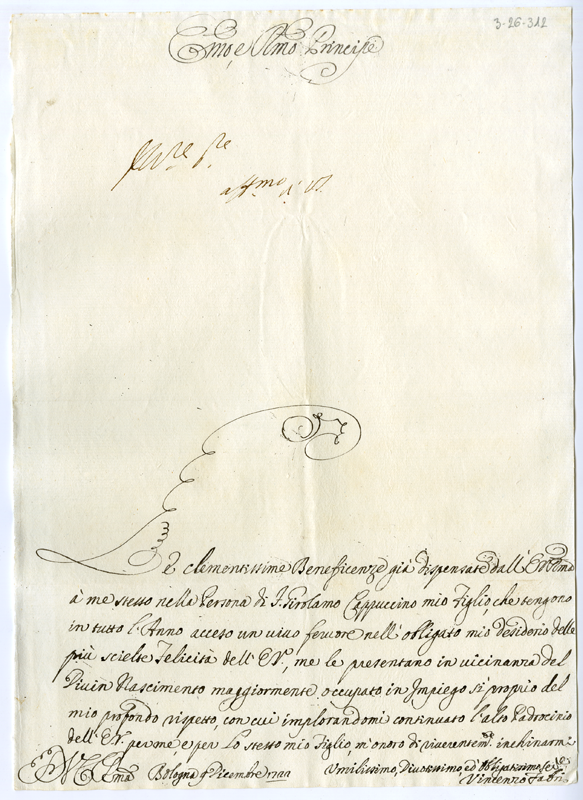 3-26-312
Emo, e Rmo Principe
aff.mo
Le clementissime Beneficenze già dispensate dall' E.V. Ema
à me stesso nella Persona di F. Girolamo Cappuccino mio Figlio che tengono
in tutto l'Anno acceso un vivo fervore nell' obligato mio desiderio delle
più scielte Felicità dell' E.V., me le presentano in vicinanza del
Divin Nascimento maggiormente occupato in Impiego sì proprio del
mio profondo rispetto, con cui implorandomi continuato l'alto Padrocinio
dell' E.V. per me, e per Lo stesso mio Figlio, m'onoro di riverentem.e inchinarmi
Bologna Dicembre
Umilissimo, Divotissimo, ed Obligatissimo
Vincenzo Fabri